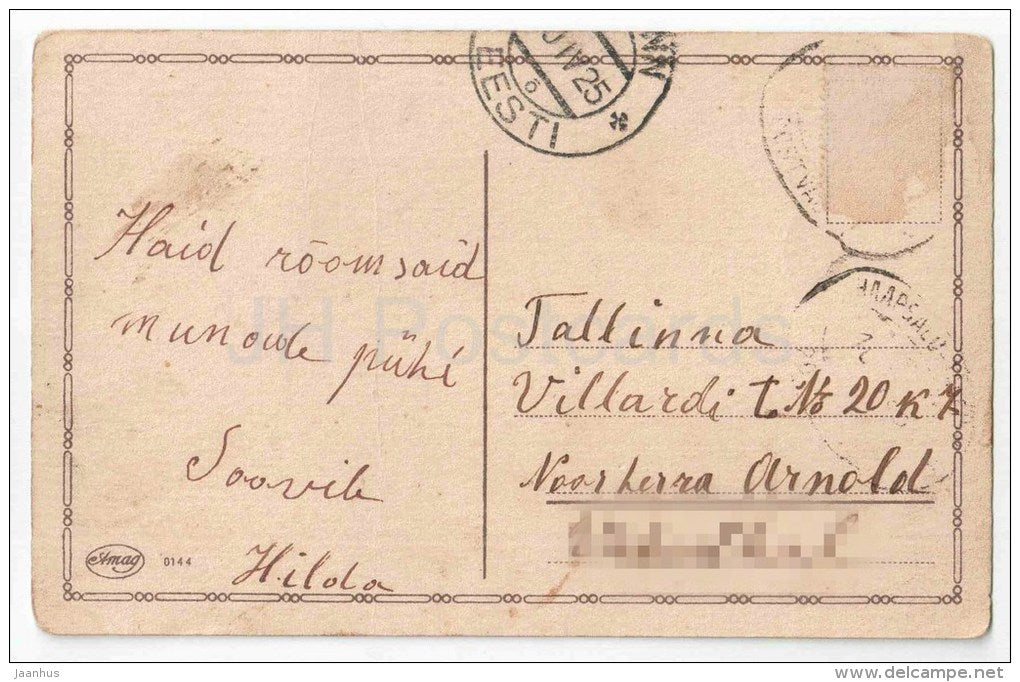 EESTI
IV 25
Haid rõõmsaid
munade pühi
Soovib
Hilda
Amag 0144
Tallinna
Villardi t. № 20 K 7
Noorherra Arnold
JH Postcards
jaanhus
www.delcampe.net